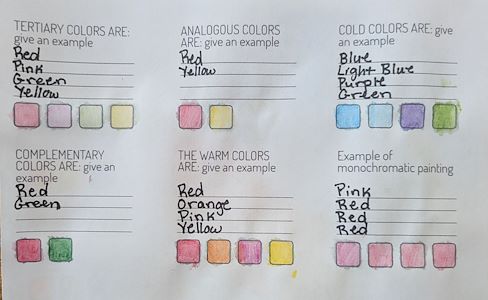 TERTIARY COLORS ARE:
give an example
Red
Pink
Green
Yellow
ANALOGOUS COLORS
ARE: give an example
Red
Yellow
COLD COLORS ARE: give
an example
Blue
Light Blue
Purple
Green
COMPLEMENTARY
COLORS ARE: give an
example
Red
Green
THE WARM COLORS
ARE: give an example
Red
Orange
Pink
Yellow
Example of
monochromatic painting
Pink
Red
Red
Red